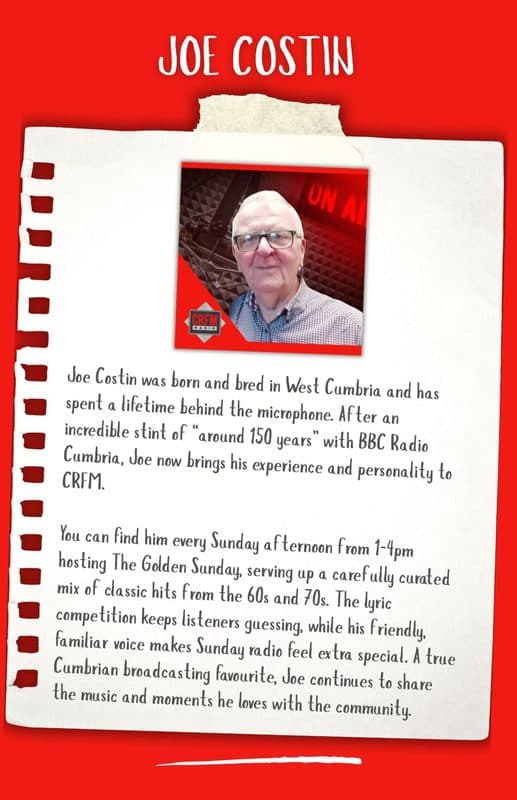 JOE COSTIN
ON AI
CRFM
RADIO
Joe Costin was born and bred in West Cumbria and has
spent a lifetime behind the microphone. After an
incredible stint of “around 150 years” with BBC Radio
Cumbria, Joe now brings his experience and personality to
CRFM.
You can find him every Sunday afternoon from 1-4pm
hosting The Golden Sunday, serving up a carefully curated
mix of classic hits from the 60s and 70s. The lyric
competition keeps listeners guessing, while his friendly,
familiar voice makes Sunday radio feel extra special. A true
Cumbrian broadcasting favourite, Joe continues to share
the music and moments he loves with the community.